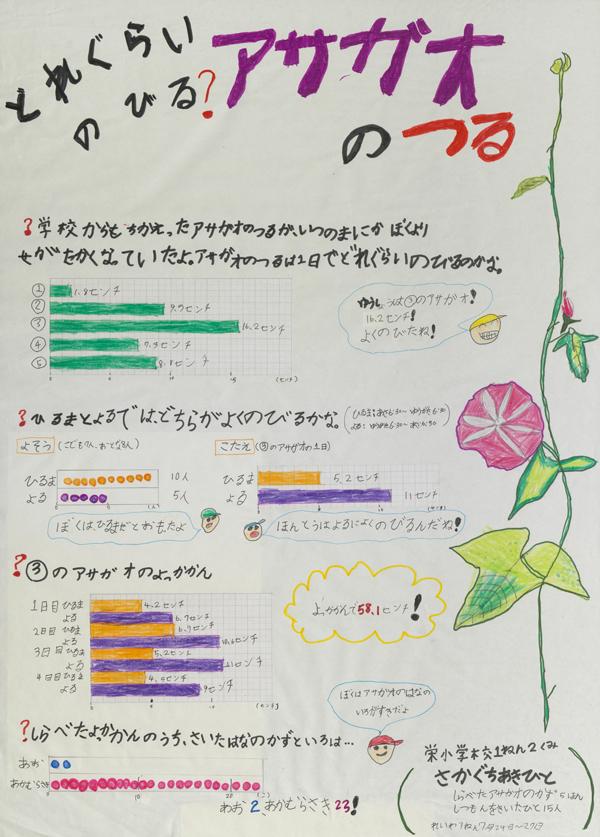 どれぐらい
のびる?
アサガオ
の つる
?学校からもちかえったアサガオのつるが、いつのまにか ぼくより
せがたかくなっていたよ。アサガオのつるは1日でどれぐらいのびるのかな。
① 1.8センチ
② 9.9センチ
③ 16.2センチ
④ 7.5センチ
⑤ 8.8センチ
0 5 10 15 (センチ)
ゆうしょうは③のアサガオ!
16.2センチ!
よくのびたね!
?ひるまとよるでは、どちらがよくのびるかな。
(ひるま:あさ6:30~ゆうがた6:30
よる:ゆうがた6:30~あさ6:30)
よそう (こども7人、おとな8人)
ひるま 10人
よる 5人
0 5 10 (人)
ぼくは、ひるまだとおもったよ
こたえ (③のアサガオの1日)
ひるま 5.2センチ
よる 11センチ
0 5 10 (センチ)
ほんとうはよるによくのびるんだね!
?③のアサガオのよっかかん
1日目 ひるま 4.2センチ
よる 6.7センチ
2日目 ひるま 6.9センチ
よる 10.6センチ
3日目 ひるま 5.2センチ
よる 11センチ
4日目 ひるま 4.5センチ
よる 9センチ
0 5 10 (センチ)
よっかかんで58.1センチ!
ぼくはアサガオのはなの
いろがすきだよ
?しらべたよっかかんのうち、さいたはなのかずといろは…
あお
あかむらさき
0 10 20 (こ)
あお2、あかむらさき23!
栄小学校1ねん2くみ
さかぐちあきひと
しらべたアサガオのかず5ほん
しつもんをきいたひと15人
れいわ1ねん7月24日~27日